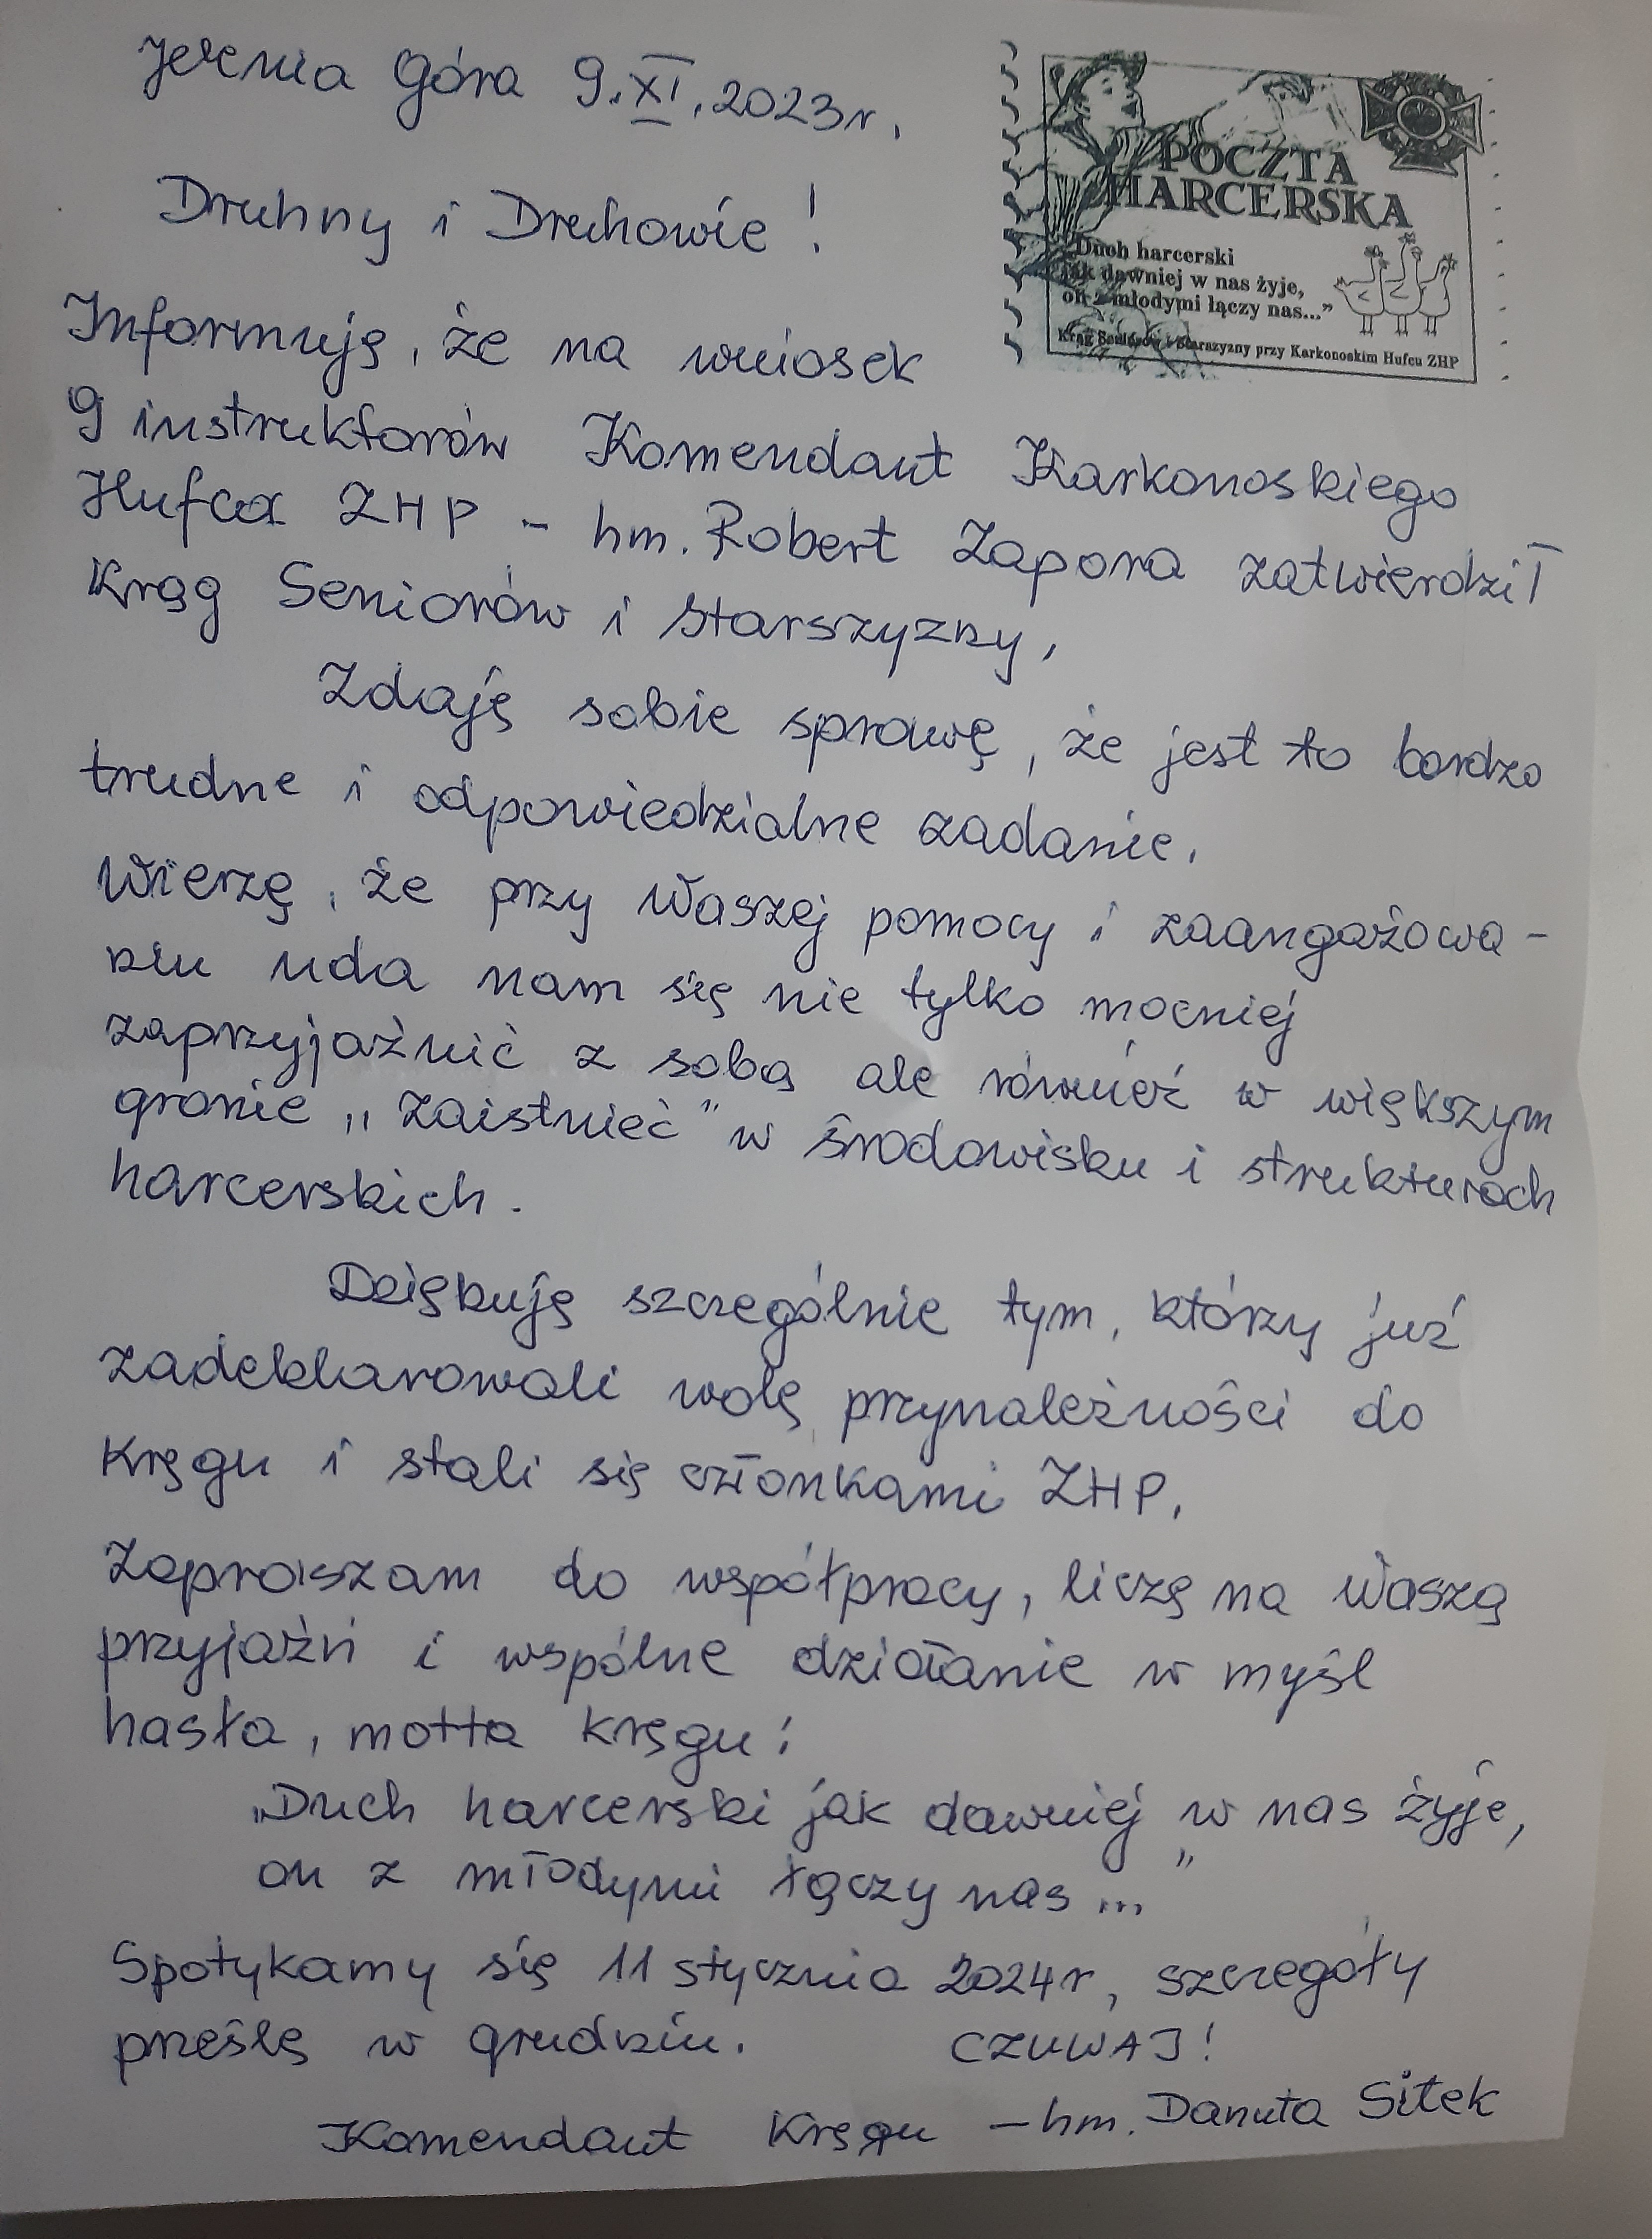 Jelenia Góra 9.XI.2023r.
POCZTA
HARCERSKA
"Duch harcerski
jak dawniej w nas żyje,
on z młodymi łączy nas..."
Krąg Seniorów i Starszyzny przy Karkonoskim Hufcu ZHP
Druhny i Druhowie!
Informuję, że na wniosek
9 instruktorów Komendant Karkonoskiego
Hufca ZHP - hm. Robert Zapora zatwierdził
Krąg Seniorów i Starszyzny.
Zdaję sobie sprawę, że jest to bardzo
trudne i odpowiedzialne zadanie.
Wierzę, że przy Waszej pomocy i zaangażowa-
niu uda nam się nie tylko mocniej
zaprzyjaźnić z sobą ale również w większym
gronie „zaistnieć" w środowisku i strukturach
harcerskich.
Dziękuję szczególnie tym, którzy już
zadeklarowali wolę przynależności do
Kręgu i stali się członkami ZHP.
Zapraszam do współpracy, liczę na Waszą
przyjaźń i wspólne działanie w myśl
hasła, motta kręgu:
„Duch harcerski jak dawniej w nas żyje,
on z młodymi łączy nas..."
Spotykamy się 11 stycznia 2024r, szczegóły
prześlę w grudniu. CZUWAJ!
Komendant Kręgu - hm. Danuta Sitek